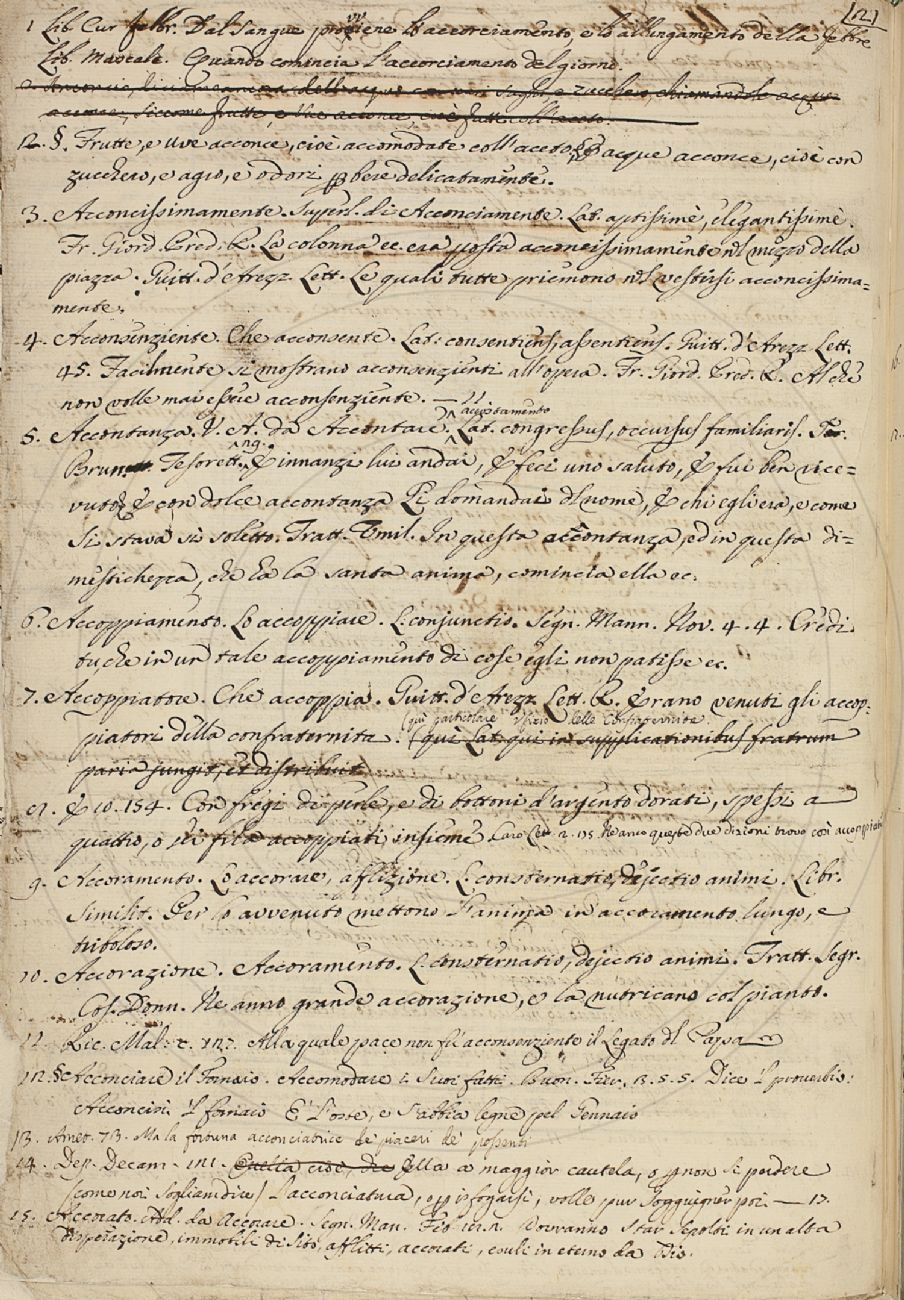 [12]
1 Lib. Cur. febbr. Dal Sangue proviene lo accorciamento, e lo allungamento della febbre
Lib. Mastale. Quando comincia l'accorciamento del giorno.
acconce, siccome frutte, e uve acconce, cioè fatte coll'aceto.
2. §. Frutte, e uve acconce, cioè accomodate coll'aceto, acque acconce, cioè con
zucchero, e agro, e odori ꝑ bere delicatamente.
3. Acconcissimamente. Superl. di Acconciamente. Lat. aptissimè, elegantissimè.
Fr. Giord. Pred. R. La colonna ec. era posta acconcissimamente nel mezzo della
piazza. Guitt. d'Arezz. Lett. Le quali tutte priemono nel vestirsi acconcissima=
mente.
4. Acconsenziente. Che acconsente. Lat. consentiens, assentiens. Guitt. d'Arezz. Lett.
45. Facilmente si mostrano acconsenzienti all'opera. Fr. Giord. Pred. R. Al che
non volle mai essere acconsenziente. — 11
accostamento
5. Accontanza. V. A. da Accontare. Lat. congressus, occursus familiaris.
Brun. Tesorett. E innanzi lui andai, E feci uno saluto, E fui ben rice=
vuto: E con dolce accontanza Li domandai del nome, E chi egli era, e come
Si stava sì soletto. Tratt. Umil. In questa accontanza, ed in questa di=
mestichezza, che ha la santa anima, comincia ella ec.
6. Accoppiamento. Lo accoppiare. L. conjunctio. Segn. Mann. Nov. 4. 4. Credi
tu che in un tale accoppiamento di cose egli non patisse ec.
7. Accoppiatore. Che accoppia. Guitt. d'Arezz. Lett. R. Erano venuti gli accop=
(qui particolare Ufizio delle Confraternite.
piatori della confraternita. (qui Lat. qui in supplicationibus fratrum
paria jungit, et distribuit.
E 10. 154. Con fregi di perle, e di bottoni d'argento dorati, spessi a
quattro, o sei fila accoppiati insieme Caro Lett. 2. 175. Ne anco queste due dizioni trovo così accoppiate
9. Accoramento. Lo accorare, aflizione. L. consternatio, dejectio animi. Libr.
Similit. Per lo avvenuto mettono l'anima in accoramento lungo, e
triboloso.
10. Accorazione. Accoramento. L. consternatio, dejectio animi. Tratt. Segr.
Cos. Donn. Ne anno grande accorazione, e la nutricano col pianto.
11. Ric. Mal. c. 127. Alla quale pace non fu acconsenziente il Legato del Papa
12. § Acconciare il Fornaio. Accomodare i suoi fatti. Buon. Fier. 3. 5. 5. Dice 'l proverbio:
Acconcisi 'l fornaio E l'oste, e s'abbia legne pel Gennaio
13. Amet. 73. Ma la fortuna acconciatrice de' piaceri de' possenti
14. Dep. Decam. 121. Quella cioè, che Ella a maggior cautela, o ꝑ non si perdere
(come noi sogliam dire) l'acconciatura, o ꝑ isfogarsi, volle pur soggiugner poi — 17.
15. Accorato. Add. da Accorare. Segn. Man. Feb. 12. 2. Dovranno star sepolti in un'alta
disperazione, immobili di sito, afflitti, accorati, esuli in eterno da Dio.